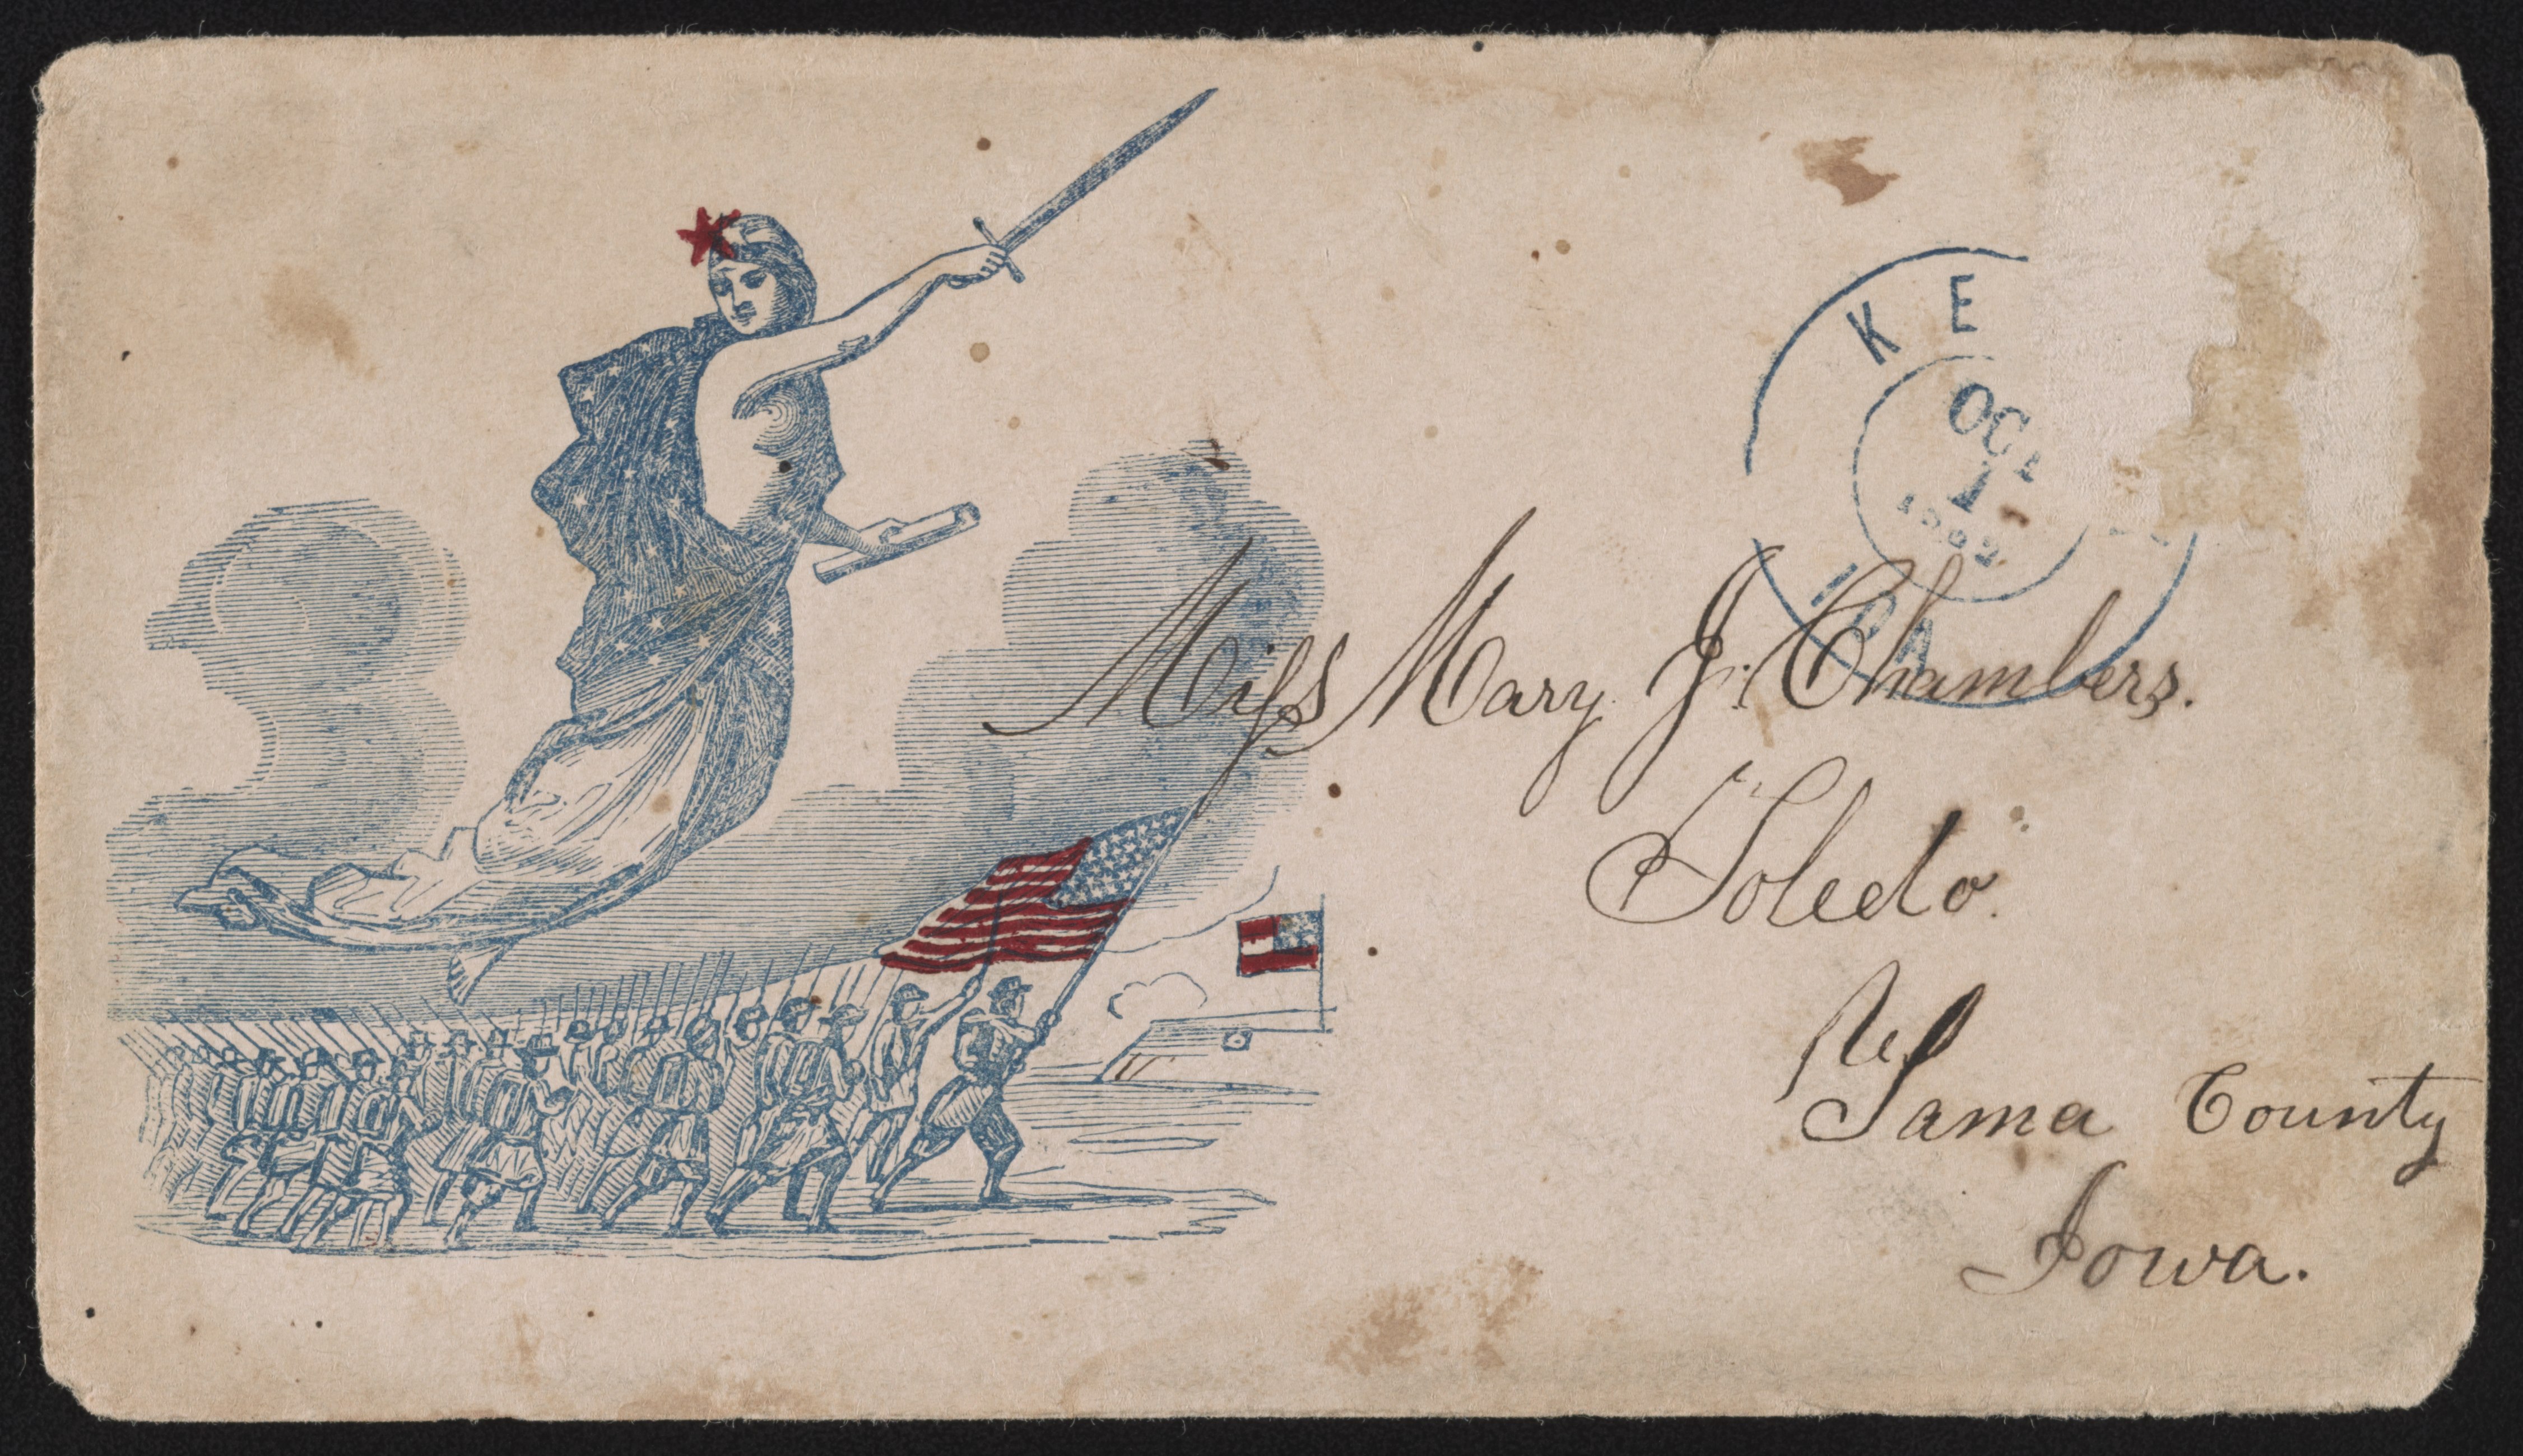 KE
OCT
1
1862
IOA
Miſs Mary J. Chambers.
Toledo.
Tama County
Iowa.